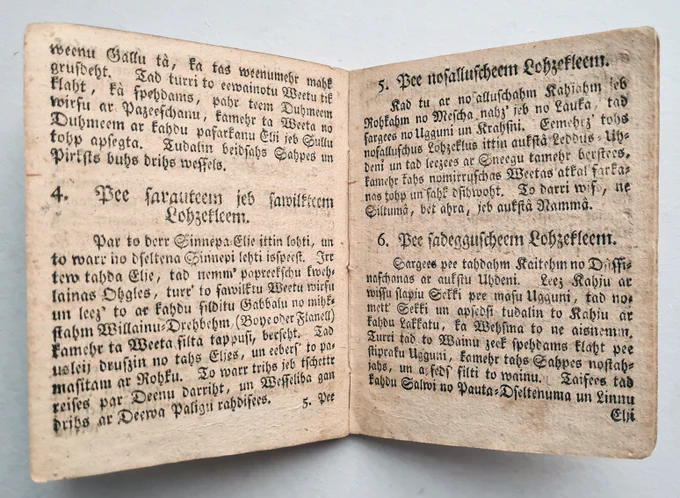 weenu Gallu tà, ka tas weenumehr mahk
grusdeht. Tad turri to eewainotu Weetu tik
klaht, kà spehdams, pahr teem Duhmeem
wirsu ar Pazeeschanu, kamehr ta Weeta no
Duhmeem ar kahdu pasarkanu Elji jeb Sullu
tohp apsegta. Tudalin beidsahs Sahpes un
Pirksts buhs drihs wessels.
4. Pee sarauteem jeb sawilkteem
Lohzekleem.
Par to derr Sinnepa-Elje ittin lohti, un
to warr no dseltena Sinnepi lehti isspeest. Irr
tew tahda Elje, tad nemm' papreekschu kweh-
lainas Ohgles, turr' to sawilktu Weetu wirsu
un leez' to ar kahdu silditu Gabbalu no mihk-
stahm Willainu-Drehbehm (Boye oder Flanell)
kamehr ta Weeta silta tappusi, berseht. Tad
pusleij druszin no tahs Eljes, un eebers' to pa-
masitam ar Rohku. To warr trihs jeb tschettr
reises par Deenu darriht, un Wesseliba gan
drihs ar Deewa Paligu rahdisees.
5. Pee
5. Pee nosalluscheem Lohzekleem.
Kad tu ar nosalluschahm Kahjahm jeb
Rohkahm no Mescha nahz' jeb no Lauka, tad
sargees no Ugguni un Krahsni. Eemehrz' tohs
nosalluschus Lohzeklus ittin aukstâ Leddus-Uh-
deni un tad leezees ar Sneegu tamehr berstees,
kamehr kahs nomirruschas Weetas atkal sarka-
nas tohp un sahk dsihwoht. To darri wiss, ne
Siltumâ, bet ahra, jeb aukstâ Nammâ.
6. Pee sadegguscheem Lohzekleem.
Sargees pee tahdahm Kaitehm no Dsissi-
naschanas ar aukstu Uhdeni. Leez Kahju ar
wissu slapju Sekki pee masu Ugguni, tad no-
mett' Sekki un apsedsi tudalin to Kahju ar
kahdu Lakkatu, ka Wehsma to ne aisnemm.
Turri tad to Wainu zeek spehdams klaht pee
stipraku Ugguni, kamehr tahs Sahpes nostah-
jahs, un apseds' silti to wainu. Taisees tad
kahdu Salwi no Pauta-Dseltenuma un Linnu
Elji